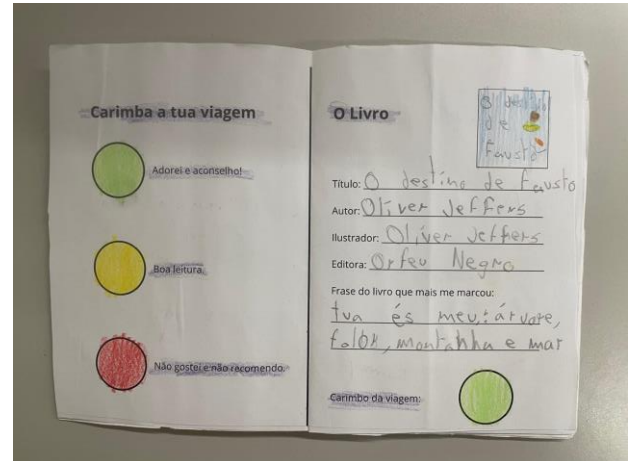 Carimba a tua viagem
Adorei e aconselho!
Boa leitura.
Não gostei e não recomendo.
O Livro
O destino
de
Fausto
Título: O destino de Fausto
Autor: Oliver Jeffers
Ilustrador: Oliver Jeffers
Editora: Orfeu Negro
Frase do livro que mais me marcou:
tua és meu: árvore,
montanha e mar
Carimbo da viagem: